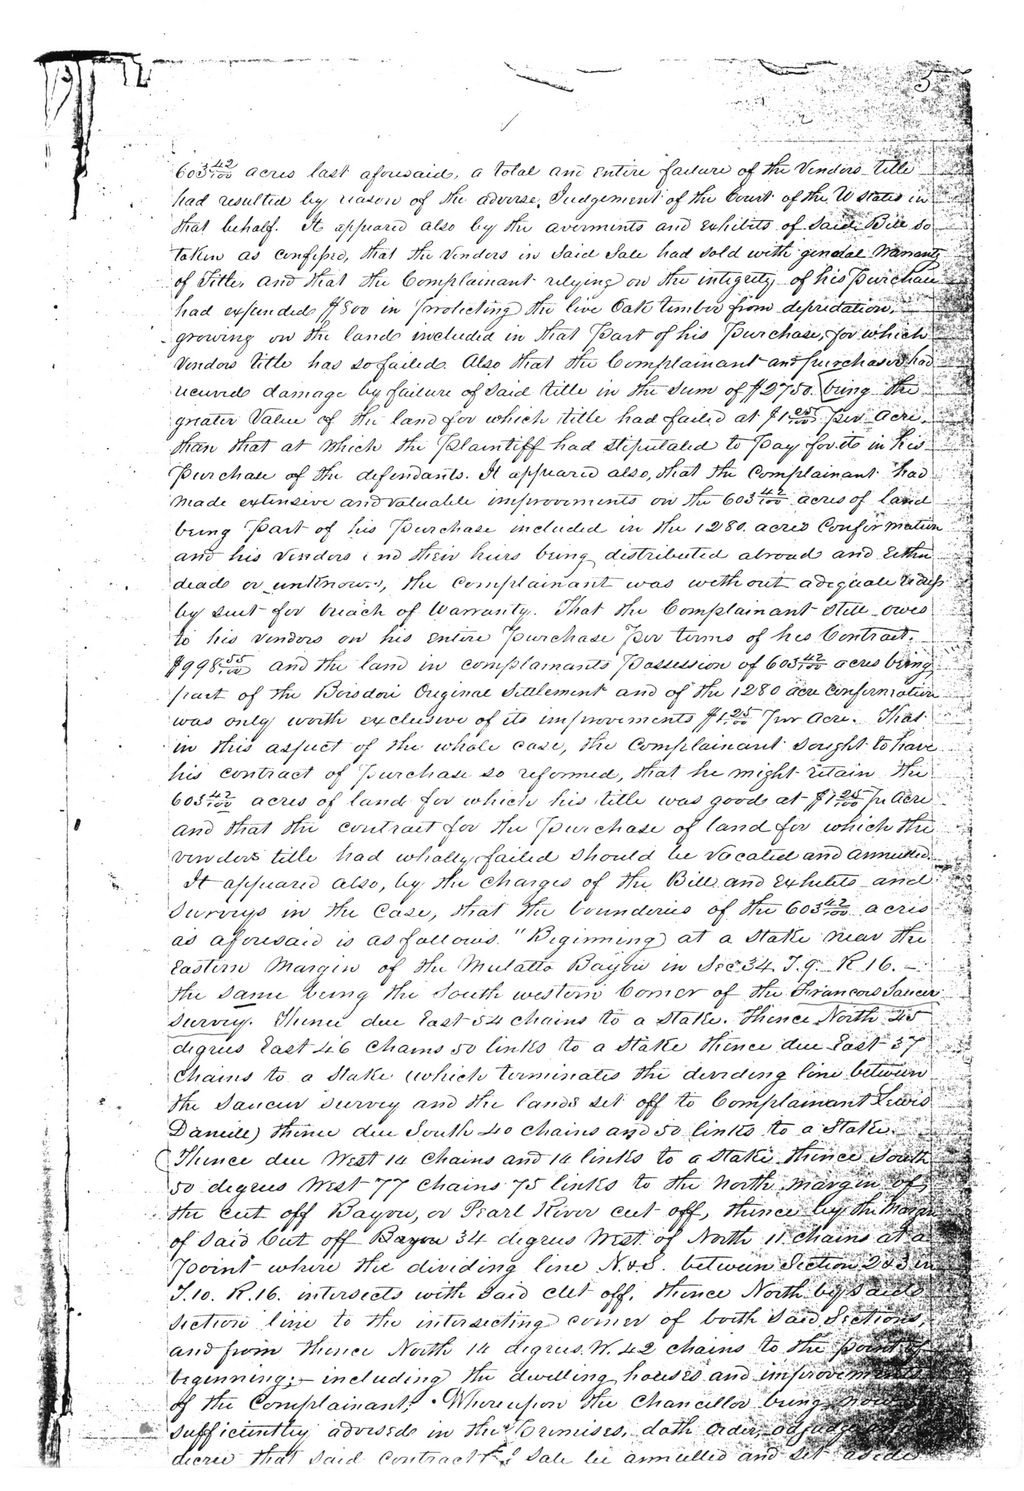 5
603 42/100 acres last aforesaid, a total and entire failure of the Vendors title
had resulted by reason of the adverse Judgement of the Court of the U States in
that behalf. It appeared also by the averments and exhibits of said Bill so
taken as confessed, that the Vendors in said Sale had sold with general Warranty
of Title, and that the Complainant relying on the integrity of his Purchase
had expended $500 in protecting the live Oak timber from depridation,
growing on the land included in that Part of his Purchase, for which
Vendors title has so failed. Also that the Complainant and purchaser had
received damage by failure of said title in the sum of $2750. being the
greater Value of the land for which title had failed at $1 25/100 per acre,
than that at which the Plaintiff had stipulated to Pay for it in his
Purchase of the defendants. It appeared also, that the Complainant had
made extensive and valuable improvements on the 603 42/100 acres of land
being Part of his Purchase included in the 1280 acres Confirmation
and his Vendors and their heirs being distributed abroad and either
dead or unknown, the complainant was without adequate redress
by suit for breach of Warranty. That the Complainant still owes
to his vendors on his entire Purchase Per terms of his Contract.
$998 55/100 and the land in complainants Possession of 603 42/100 acres being
part of the Boisdoré Original Settlement and of the 1280 acre confirmation
was only worth exclusive of its improvements $1 25/100 Per acre. That
in this aspect of the whole case, the Complainant sought to have
his contract of Purchase so reformed, that he might retain the
603 42/100 acres of land for which his title was good at $1 25/100 Pr Acre
and that the contract for the Purchase of land for which the
vendors title had wholly failed should be vacated and annulled.
It appeared also, by the charges of the Bill and Exhibits and
Surveys in the Case, that the bounderies of the 603 42/100 acres
as aforesaid is as follows. "Beginning at a Stake near the
Eastern Margin of the Mulatto Bayou in Sec 34 T. 9. R 16. -
the same being the South western Corner of the Francois Saucer
Survey. Thence due East 54 chains to a Stake. Thence North 45
degrees East 46 Chains 50 links to a Stake thence due East 37
Chains to a Stake (which terminates the dividing line between
the Saucer survey and the lands set off to Complainant Lewis
Daniell) thence due South 40 chains and 50 links to a Stake.
Thence due West 14 Chains and 14 links to a stake thence South
50 degrees West 77 chains 75 links to the North margin of
the cut off Bayou, or Pearl River cut off, thence by the Margin
of said Cut off Bayou 34 degrees West of North 11 chains at a
Point where the dividing line N&S. between Section 2&3 in
T. 10. R. 16. intersects with said cut off, thence North by said
section line to the intersecting corner of both said Sections,
and from thence North 14 degrees W. 42 chains to the point of
beginning; - including the dwelling houses and improvements
of the Complainant. Whereupon the Chancellor being now
sufficiently advised in the Premises, doth order, adjudge and
decree that said contract of Sale be annulled and set aside